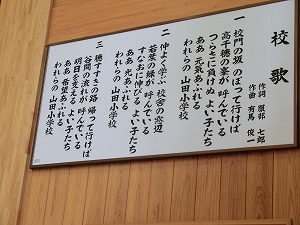 校歌
作詞 服部 七郎
作曲 有馬 俊一
一 校門の坂 のぼって行けば
高千穂の峯が 呼んでいる
つらさに負けぬ よい子たち
ああ 元気あふれる
われらの 山田小学校
二 仲よく学ぶ 校舎の窓辺
若葉の緑が 呼んでいる
すなおに伸びる よい子たち
ああ 光あふれる
われらの 山田小学校
三 穂すすきの路 帰って行けば
谷間の流れが 呼んでいる
明日を支える よい子たち
ああ 希望あふれる
われらの 山田小学校